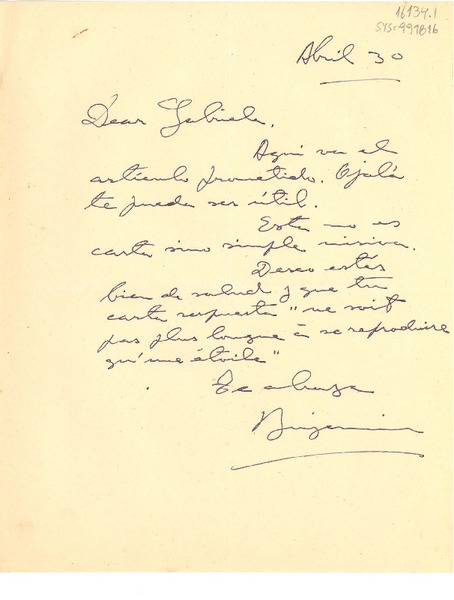 16134.1
SYS=991816
Abril 30
Dear Gabriela,
Aquí va el
artículo prometido. Ojalá
te pueda ser útil.
Esta no es
carta sino simple misiva.
Deseo estés
bien de salud y que tu
carta respuesta "ne soit
pas plus longue à se reproduire
qu'une étoile"
Te abraza
Benjamin